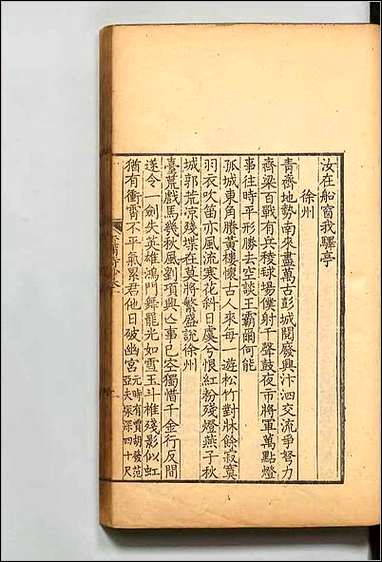 汝在船窗我驛亭
徐州
青齊地勢南來盡萬古彭城閱廢興汴泗交流爭努力
齊梁百戰有兵稜球場僕射千聲鼓夜市將軍萬點燈
事往時平形勝去空談王霸爾何能
孤城東角賸黃樓懷古人來每一遊松竹對牀餘寂寞
羽衣吹笛亦風流寒花斜日虞兮恨紅粉殘燈燕子秋
城郭荒涼殘堞在莫將繁盛說徐州
臺荒戲馬幾秋風劉項興亡事已空獨惜千金行反間
遂令一劍失英雄鴻門舞罷光如雪玉斗椎殘影似虹
猶有衝霄不平氣累君他日破幽宮 亞夫冢深四十尺元時有賈胡發范